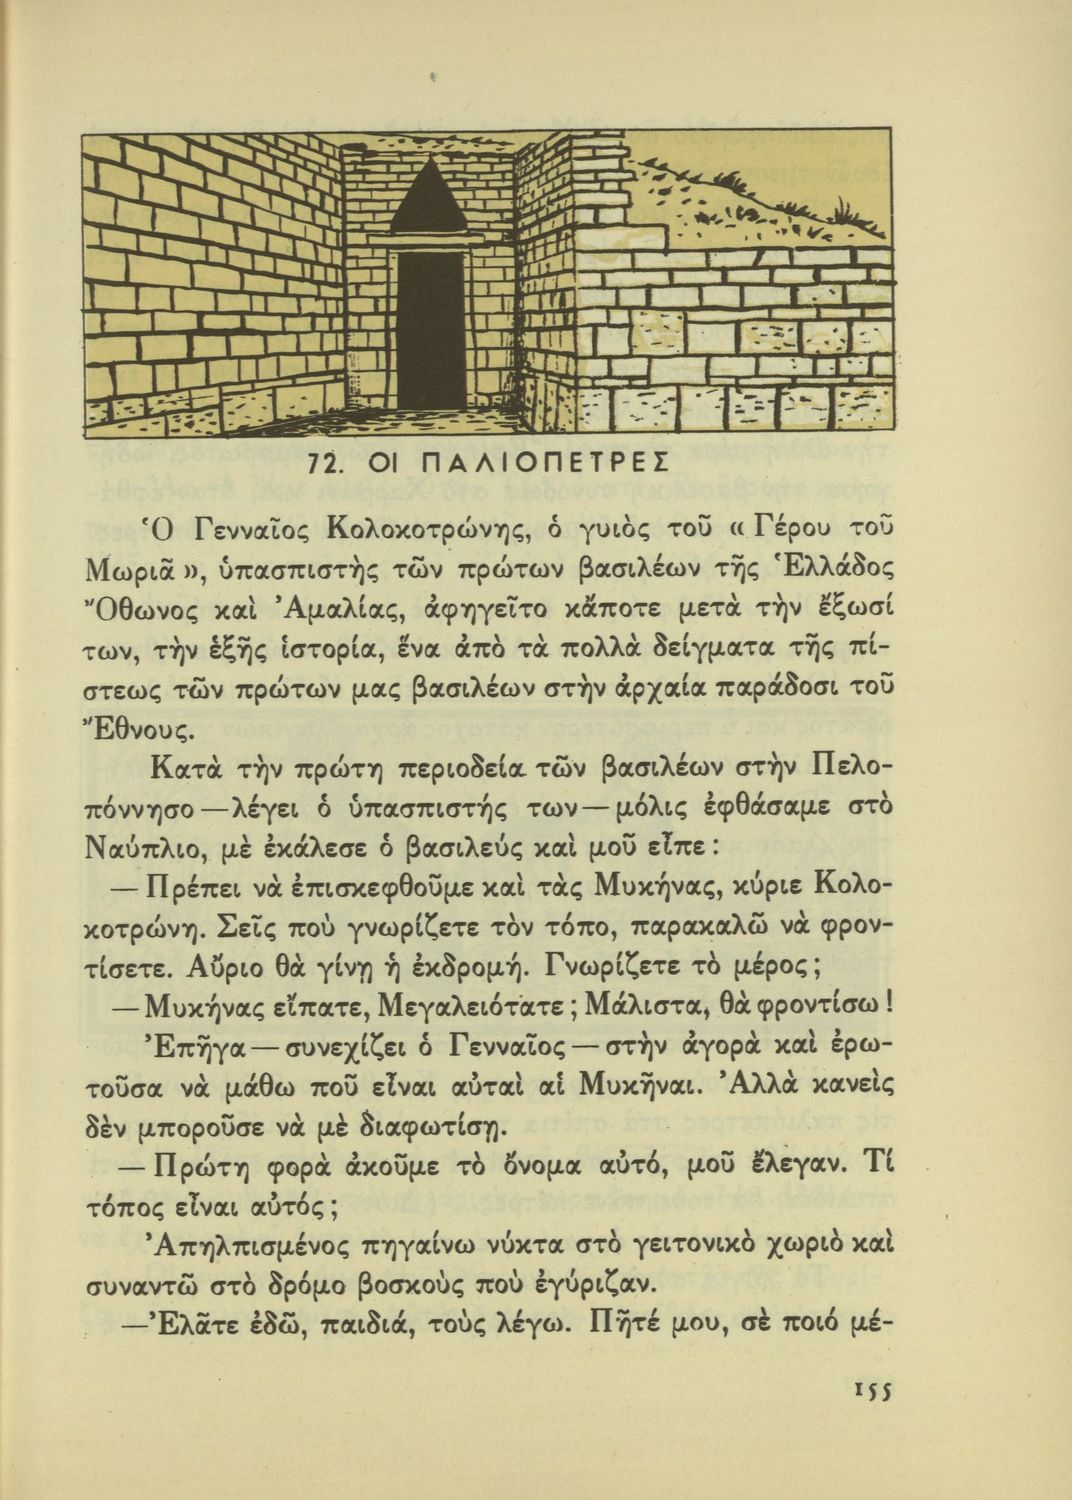 72. ΟΙ ΠΑΛΙΟΠΕΤΡΕΣ
Ὁ Γενναῖος Κολοκοτρώνης, ὁ γυιὸς τοῦ « Γέρου τοῦ
Μωριᾶ », ὑπασπιστὴς τῶν πρώτων βασιλέων τῆς Ἑλλάδος
Ὄθωνος καὶ Ἀμαλίας, ἀφηγεῖτο κἄποτε μετὰ τὴν ἔξωσί
των, τὴν ἑξῆς ἱστορία, ἕνα ἀπὸ τὰ πολλὰ δείγματα τῆς πί-
στεως τῶν πρώτων μας βασιλέων στὴν ἀρχαία παράδοσι τοῦ
Ἔθνους.
Κατὰ τὴν πρώτη περιοδεία τῶν βασιλέων στὴν Πελο-
πόννησο — λέγει ὁ ὑπασπιστής των — μόλις ἐφθάσαμε στὸ
Ναύπλιο, μὲ ἐκάλεσε ὁ βασιλεύς καὶ μοῦ εἶπε :
— Πρέπει νὰ ἐπισκεφθοῦμε καὶ τὰς Μυκήνας, κύριε Κολο-
κοτρώνη. Σεῖς ποὺ γνωρίζετε τὸν τόπο, παρακαλῶ νὰ φρον-
τίσετε. Αὔριο θὰ γίνῃ ἡ ἐκδρομή. Γνωρίζετε τὸ μέρος ;
— Μυκήνας εἴπατε, Μεγαλειότατε ; Μάλιστα, θὰ φροντίσω !
Ἐπῆγα — συνεχίζει ὁ Γενναῖος — στὴν ἀγορὰ καὶ ἐρω-
τοῦσα νὰ μάθω ποῦ εἶναι αὐταὶ αἱ Μυκῆναι. Ἀλλὰ κανεὶς
δὲν μποροῦσε νὰ μὲ διαφωτίσῃ.
— Πρώτη φορὰ ἀκοῦμε τὸ ὄνομα αὐτό, μοῦ ἔλεγαν. Τί
τόπος εἶναι αὐτός ;
Ἀπηλπισμένος πηγαίνω νύκτα στὸ γειτονικὸ χωριὸ καὶ
συναντῶ στὸ δρόμο βοσκοὺς ποὺ ἐγύριζαν.
— Ἐλᾶτε ἐδῶ, παιδιά, τοὺς λέγω. Πῆτέ μου, σὲ ποιό μέ-
155